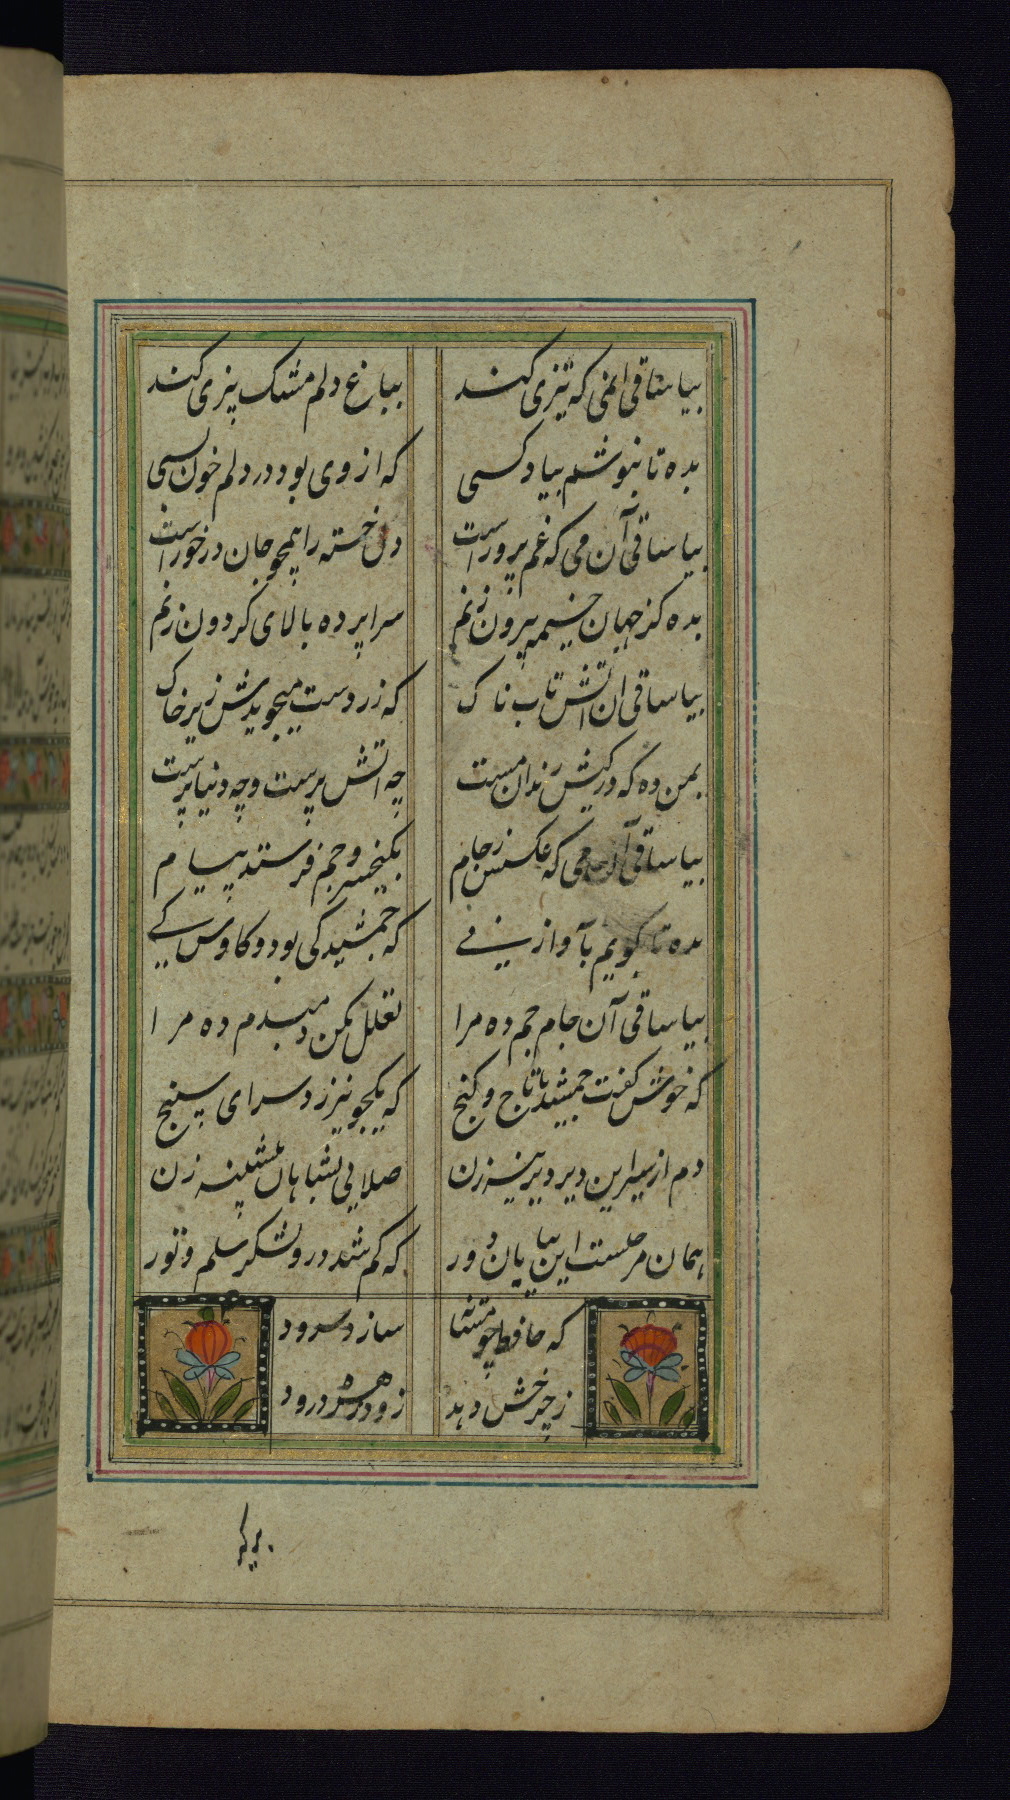 بیا ساقی آن می که تیزی کند بباغ دلم مشک بیزی کند
بده تا بنوشم بیاد کسی که از وی بود در دلم خون بسی
بیا ساقی آن می که غم پرور است دل خسته را همچو جان درخور است
بده کز جهان خیمه بیرون زنم سراپرده بالای کردون زنم
بیا ساقی ان اتش تاب ناک که زردست میجویدش زیر خاک
بمن ده که در کیش رندان مست چه اتش پرست و چه دنیا پرست
بیا ساقی آن می که عکسش ز جام بکیخسرو جم فرستد پیام
بده تا بکویم بآواز نی که جمشید کی بود و کاوس کے
بیا ساقی آن جام جم ده مرا تعلل مکن دمبدم ده مرا
که خوش کفت جمشید با تاج و کنج که یکجو نیرزد سرای سپنج
دم از سیر این دیر دیرینه زن صلایی بشاهان پیشینه زن
همان مرحلست این بیابان دور که کم شد درو لشکر سلم و تور
که حافظ چو مستانه سازد سرود
ز چرخش دهد زهره درود